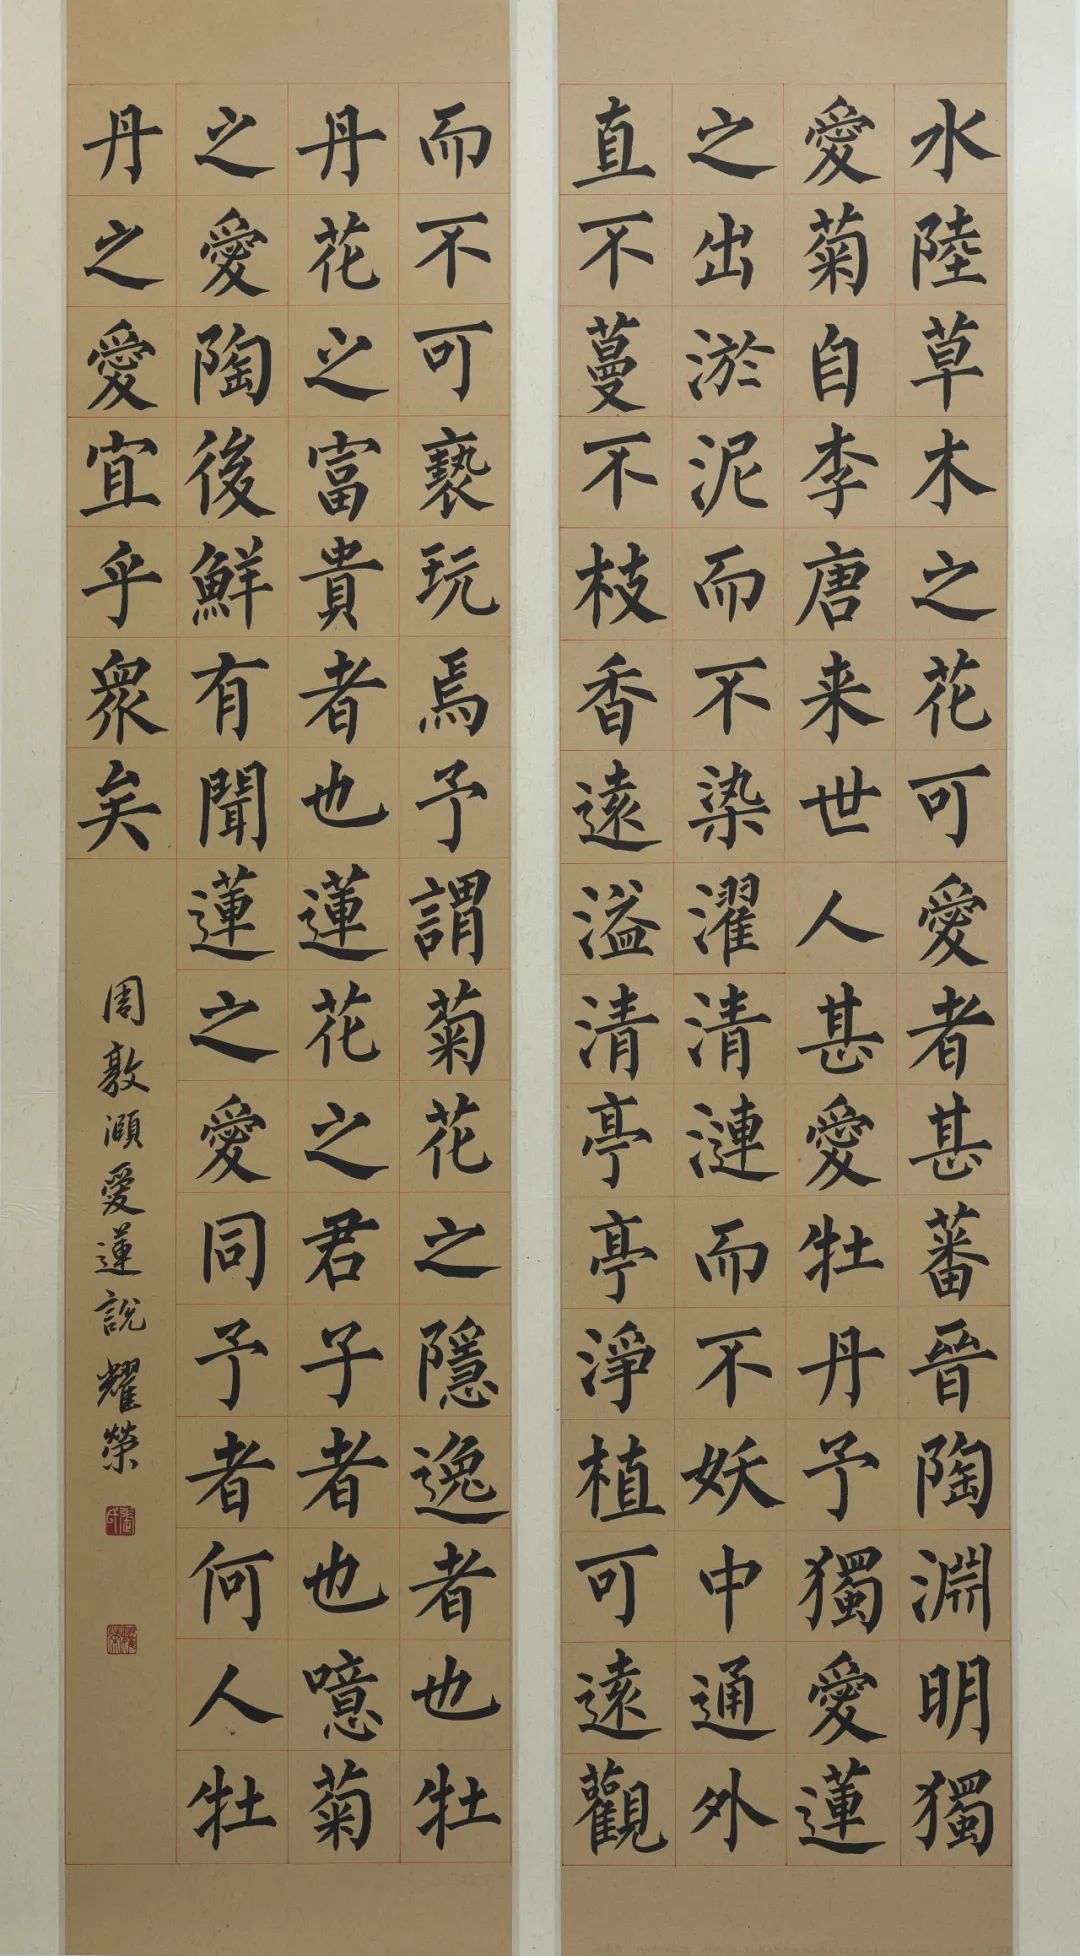 水陸草木之花可愛者甚蕃晉陶淵明獨
愛菊自李唐来世人甚愛牡丹予獨愛蓮
之出淤泥而不染濯清漣而不妖中通外
直不蔓不枝香遠溢清亭亭淨植可遠觀
而不可褻玩焉予謂菊花之隱逸者也牡
丹花之富貴者也蓮花之君子者也噫菊
之愛陶後鮮有聞蓮之愛同予者何人牡
丹之愛宜乎眾矣
周敦頤愛蓮說 耀榮